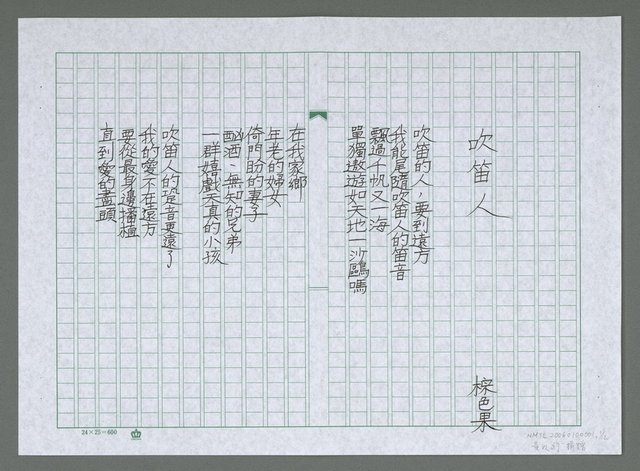 吹笛人
棕色果
吹笛的人,要到遠方
我能尾隨吹笛人的笛音
飄過千帆又一海
單獨遨遊如天地一沙鷗嗎
在我家鄉
年老的婦女
倚門盼的妻子
酗酒、無知的兄弟
一群嬉戲天真的小孩
吹笛人的足音更遠了
我的愛不在遠方
要從最身邊播植
直到愛的盡頭
24×25=600
NMTL20060100001